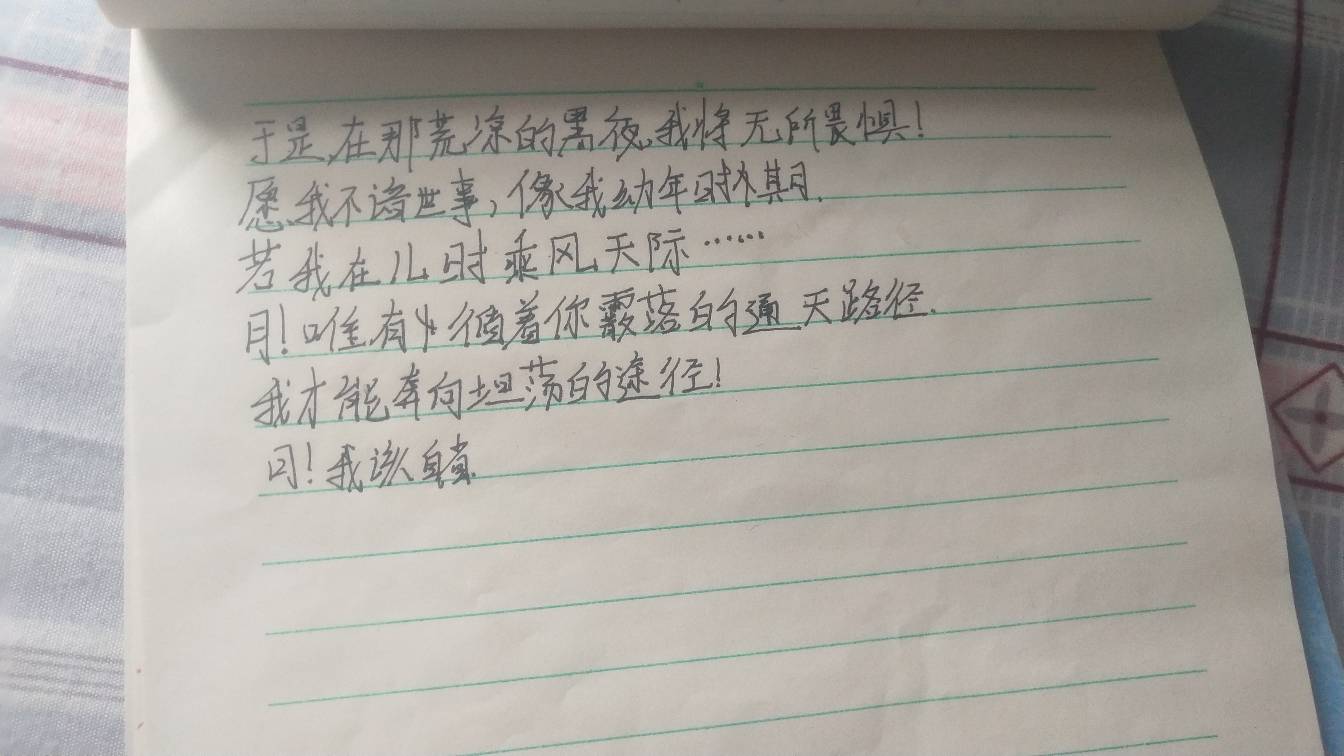 于是,在那荒凉的黑夜,我将无所畏惧!
愿我不谙世事,像我幼年时期.
若我在儿时乘风天际……
月!唯有循着你散落的通天路径.
我才能奔向坦荡的途径!
可!我该自负.